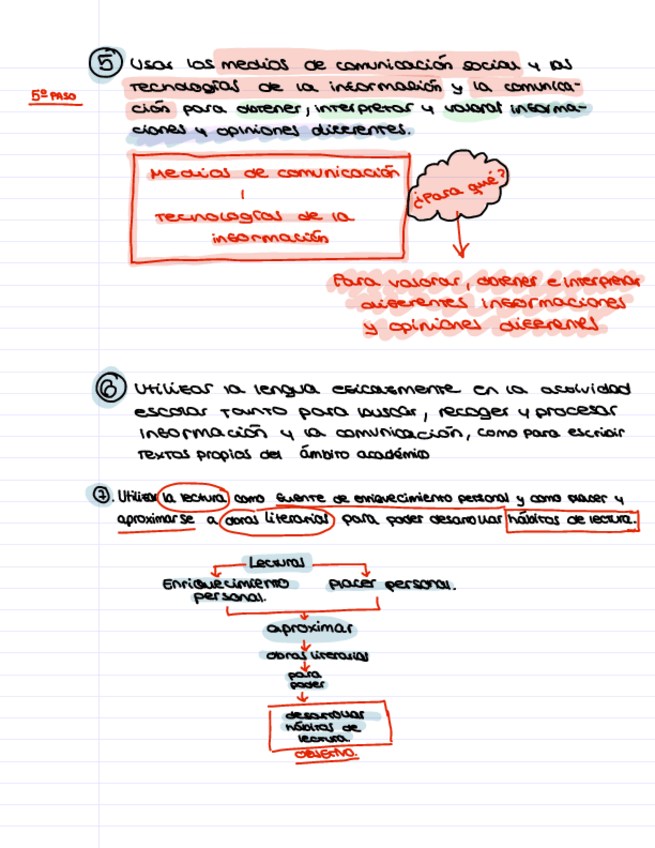 ⑤ Usar los medios de comunicación social y las
5º PASO
tecnologías de la información y la comunica-
ción para obtener, interpretar y valorar informa-
ciones y opiniones diferentes.
Medios de comunicación
¿Para qué?
tecnologías de la
información
Para valorar, obtener e interpretar
diferentes informaciones
y opiniones diferenes
⑥ Utilizar la lengua eficazmente en la actividad
escolar tanto para buscar, recoger y procesar
información y la comunicación, como para escribir
textos propios del ámbito académio
⑦. Utilizar la lectura como fuente de enriquecimiento personal y como placer y
aproximarse a obras literarias para poder desarrollar hábitos de lectura.
Lecturas
Enriquecimiento placer personal.
personal.
aproximar
obras literarias
para
poder
desarrollar
hábitos de
lectura.
OBJETIVO.